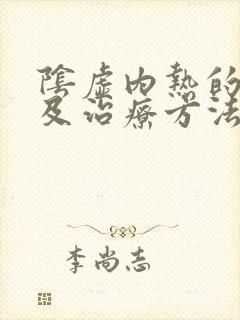 陰虛內熱的
及治療方法
李尚志